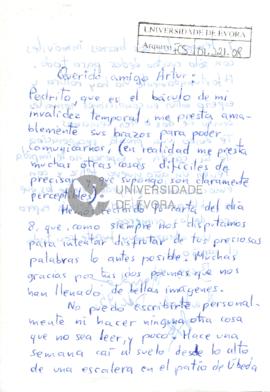 UNIVERSIDADE DE ÉVORA
Arquivo
Querido amigo Artur:
Pedrito, que es el báculo de mi
invalidez temporal, me presta ama-
blemente sus brazos para poder
comunicarnos, (en realidad me presta
muchas otras cosas difíciles de
precisar y que supongo son claramente
perceptibles).
UNIVERSIDADE
DE ÉVORA
Hemos recibido tu carta del día
8, que como siempre nos disputamos
para intentar disfrutar de tus preciosas
palabras lo antes posible. Muchas
gracias por tus dos poemas que nos
han llenado de bellas imágenes.
No puedo escribirte personal-
mente ni hacer ninguna otra cosa
que no sea leer, y poco. Hace una
semana caí al suelo desde lo alto
de una escalera en el patio de Ubeda